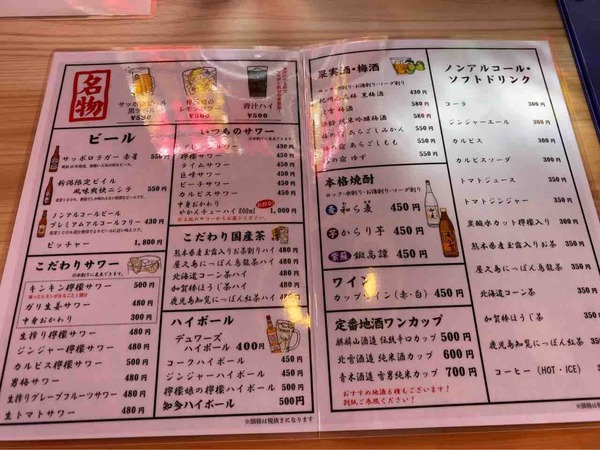 名物
サッポロビール
¥550
¥500
青汁ハイ
¥500
ビール
サッポロラガー 赤星 550円
新潟限定ビイル
風味爽快ニシテ 550円
ノンアルコールビール
プレミアムアルコールフリー 430円
ピッチャー 1,800円
こだわりサワー
キンキン檸檬サワー 500円
ガリ生姜サワー 480円
中身おかわり 300円
生搾り檸檬サワー 480円
ジンジャー檸檬サワー 480円
カルピス檸檬サワー 500円
男梅サワー 480円
生搾りグレープフルーツサワー 480円
生トマトサワー 480円
いつものサワー
プレーンサワー
檸檬サワー 450円
ライムサワー 450円
巨峰サワー 450円
ピーチサワー 450円
カルピスサワー 450円
中身おかわり
やかんチューハイ 800ml 1,000円
こだわり国産茶
熊本県産玉露入りお茶ハイ 480円
屋久島にっぽん烏龍茶ハイ 480円
北海道コーン茶ハイ 480円
加賀棒ほうじ茶ハイ 480円
鹿児島知覧にっぽん紅茶ハイ 480円
ハイボール
デュワーズ
ハイボール 400円
コークハイボール 450円
ジンジャーハイボール 450円
檸檬娘の檸檬ハイボール 500円
知多ハイボール 500円
※価格は税抜きになります
果実酒・梅酒
ロック・水割り・お湯割り・ソーダ割り
黒梅酒 430円
梅酒 580円
純米吟醸梅酒 580円
あらごしみかん 580円
あらごしもも 550円
の宿 ゆず 580円
本格焼酎
ロック・水割り・お湯割り・ソーダ割り
麦 和ら麦 450円
芋 からり芋 450円
紫蘇 鍛高譚 450円
ワイン
カップワイン(赤・白) 450円
定番地酒ワンカップ
麒麟山酒造 伝統辛口カップ 500円
北雪酒造 純米酒カップ 600円
青木酒造 雪男純米カップ 700円
おすすめ地酒6種もございます!
別紙ご参照ください!
ノンアルコール・
ソフトドリンク
コーラ 300円
ジンジャーエール 300円
カルピス 300円
カルピスソーダ 350円
トマトジュース 350円
トマトジンジャー 350円
炭酸水カット檸檬入り 300円
熊本県産玉露入りお茶 350円
屋久島にっぽん烏龍茶 350円
北海道コーン茶 350円
加賀棒ほうじ茶 350円
鹿児島知覧にっぽん紅茶 350円
コーヒー(HOT・ICE) 350円
※価格は税抜きになります